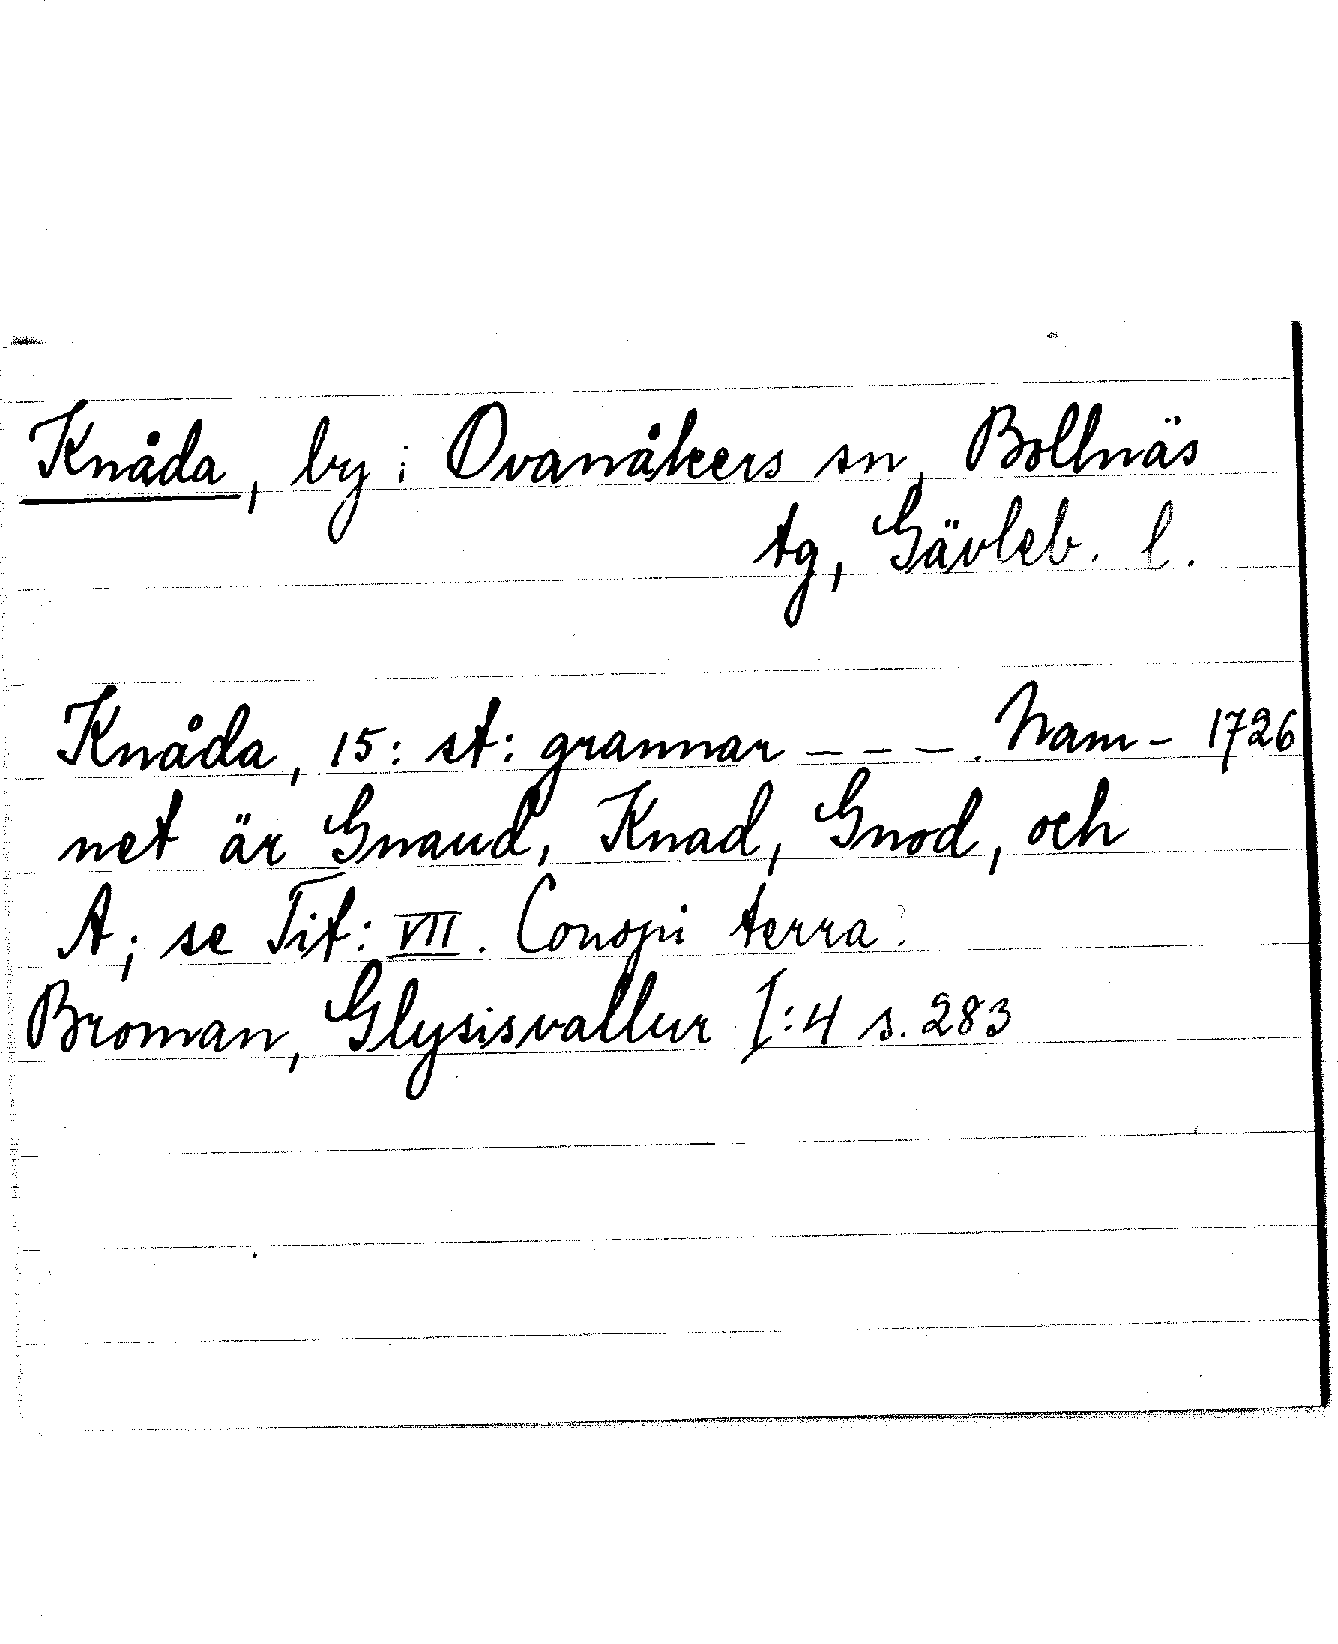 Knåda, by i Ovanåkers sn, Bollnäs
tg, Gävleb. l.
Knåda, 15: st: grannar – – –. Nam- 1726
net är Gnaud, Knad, Gnod, och
A; se Tit: VII. Conopi terra.
Broman, Glysisvallur I:4 s. 283